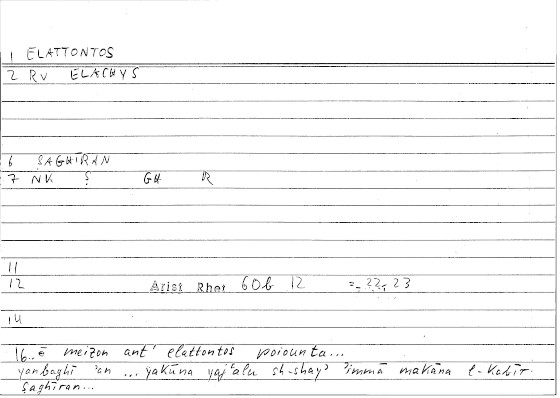 1 ELATTONTOS
2 RV ELACHYS
6 ṢAGHĪRAN
7 NK Ṣ GH R
11
12 Arist Rhet 60b 12 = 22, 23
14
16..ē meizon ant' elattontos poiounta...
yanbaghī 'an ... yakūna yaj'alu sh-shay' 'immā makāna l-kabīr
ṣaghīran...